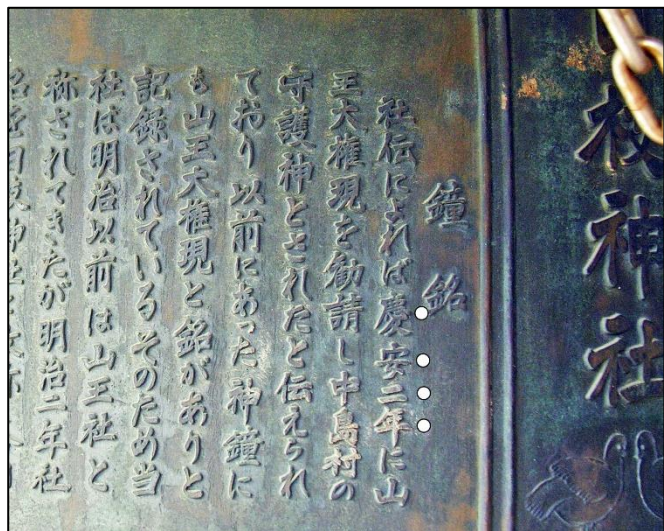 枝神社
鐘銘
社伝によれば慶安二年に山
王大権現を勧請し中島村の
守護神とされたと伝えられ
ており以前にあった神鐘に
も山王大権現と銘がありと
記録されているそのため当
社は明治以前は山王社と
称されてきたが明治二年社